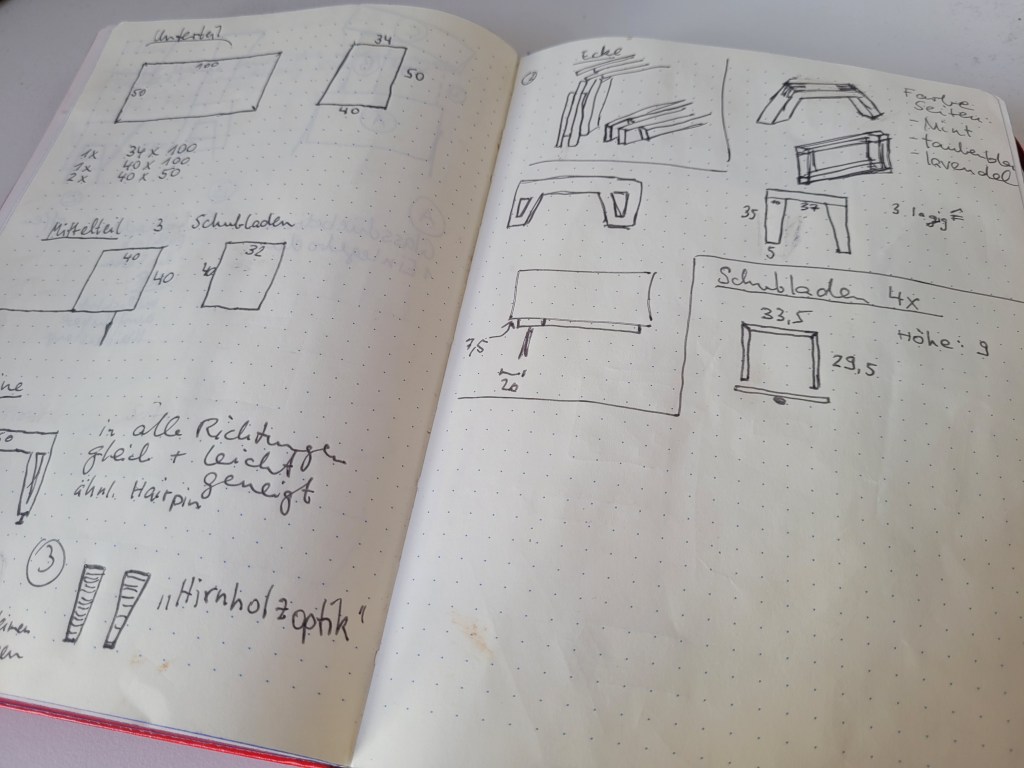 Unterteil
100
50
34
50
40
1x 34 x 100
1x 40 x 100
2x 40 x 50
Mittelteil 3 Schubladen
40
40
32
40
in alle Richtungen
gleich + leicht
geneigt
ähnl. Hairpin
3
"Hirnholzoptik"
Ecke
Farbe
Seiten:
- Mint
- taubenbla
- lavendel
35
37
5
3 lagig
7,5
20
Schubladen 4x
33,5
Höhe: 9
29,5